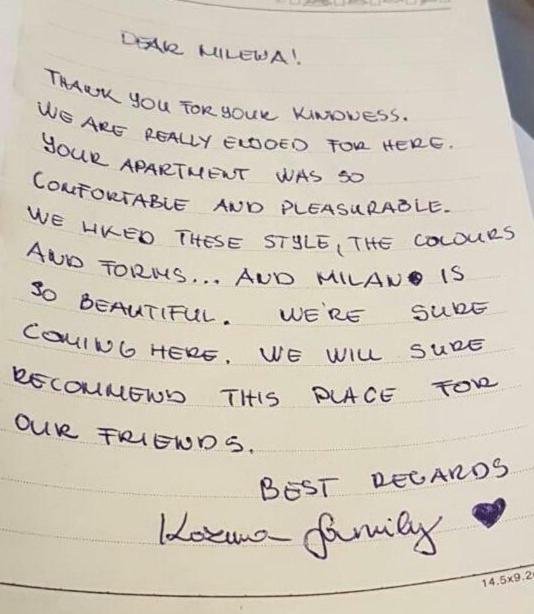 DEAR MILENA!
THANK YOU FOR YOUR KINDNESS.
WE ARE REALLY ENJOED FOR HERE.
YOUR APARTMENT WAS SO
COMFORTABLE AND PLEASURABLE.
WE LIKED THESE STYLE, THE COLOURS
AND FORMS... AND MILANO IS
SO BEAUTIFUL. WE'RE SURE
COMING HERE. WE WILL SURE
RECOMMEND THIS PLACE FOR
OUR FRIENDS.
BEST REGARDS
family
14.5x9.2